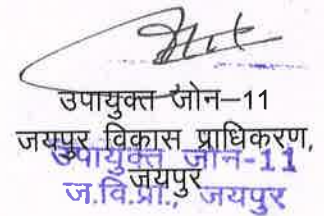 उपायुक्त जोन–11
जयपुर विकास प्राधिकरण,
उपायुक्त जोन-11
जयपुर
ज.वि.प्रा., जयपुर